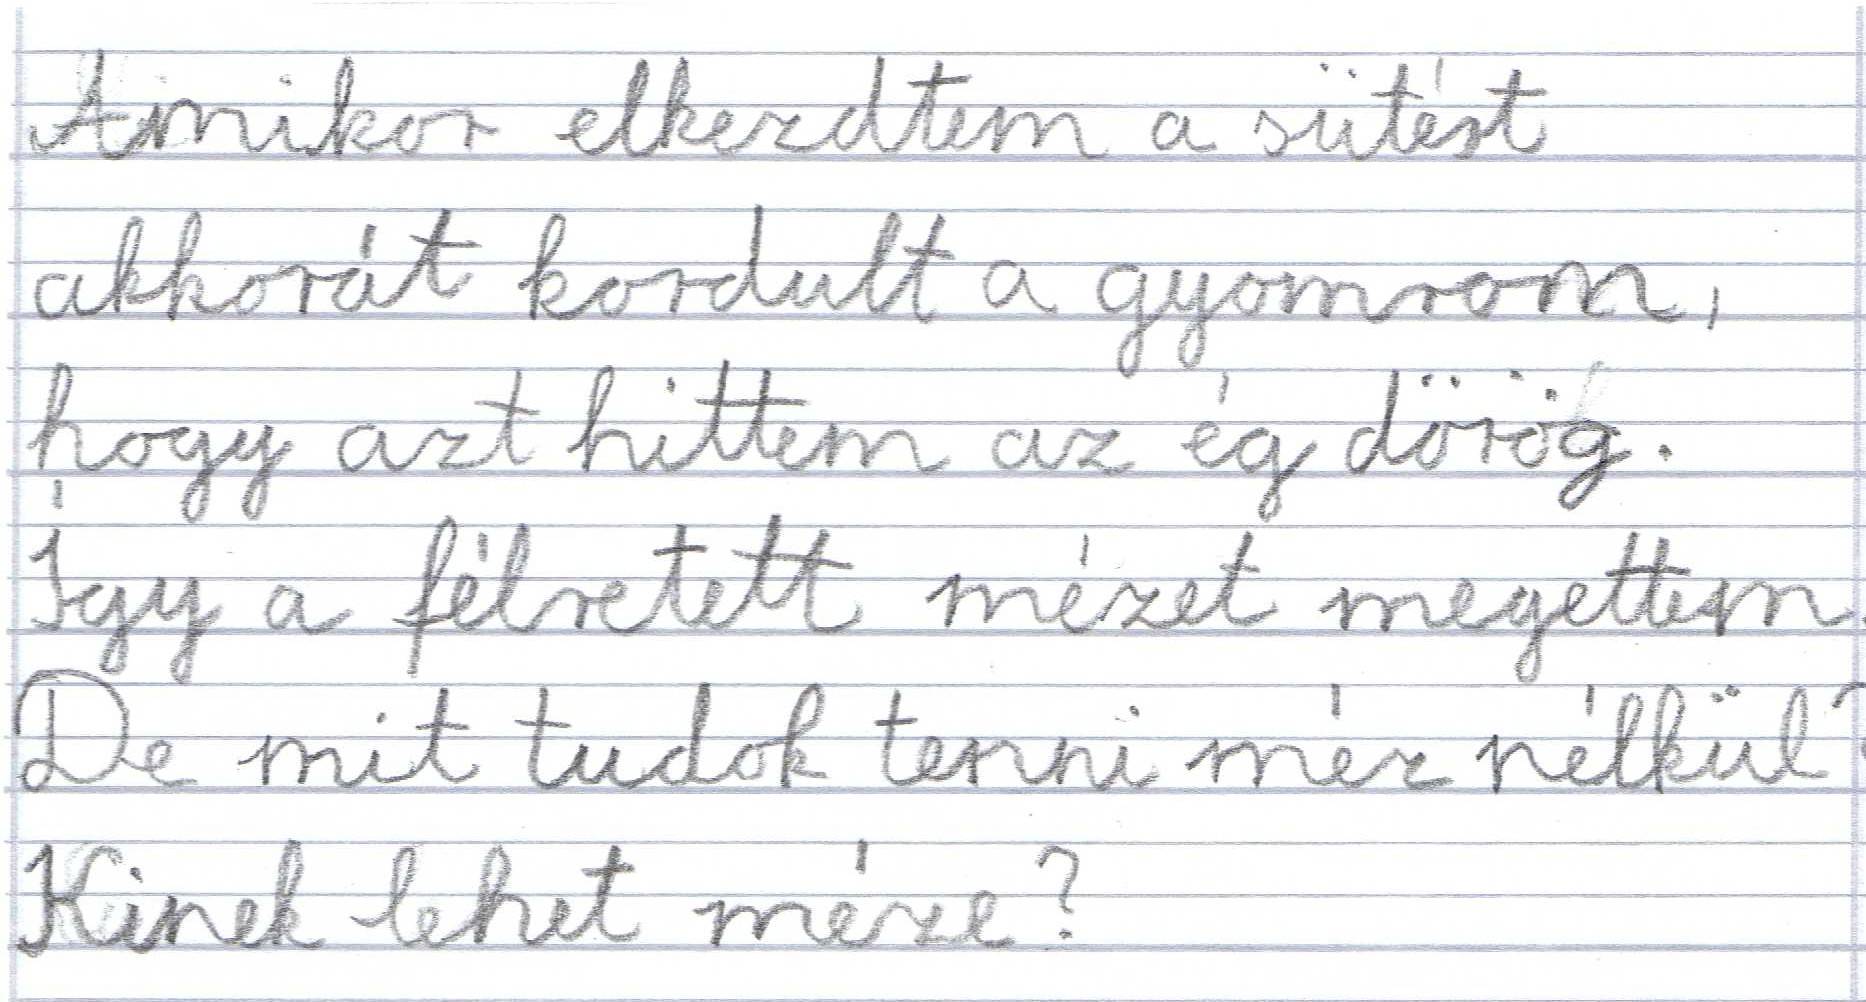 Amikor elkezdtem a sütést
akkorát kordult a gyomrom,
hogy azt hittem az ég dörög.
Így a félretett mézet megettem.
De mit tudok tenni méz nélkül?
Kinek lehet méze?